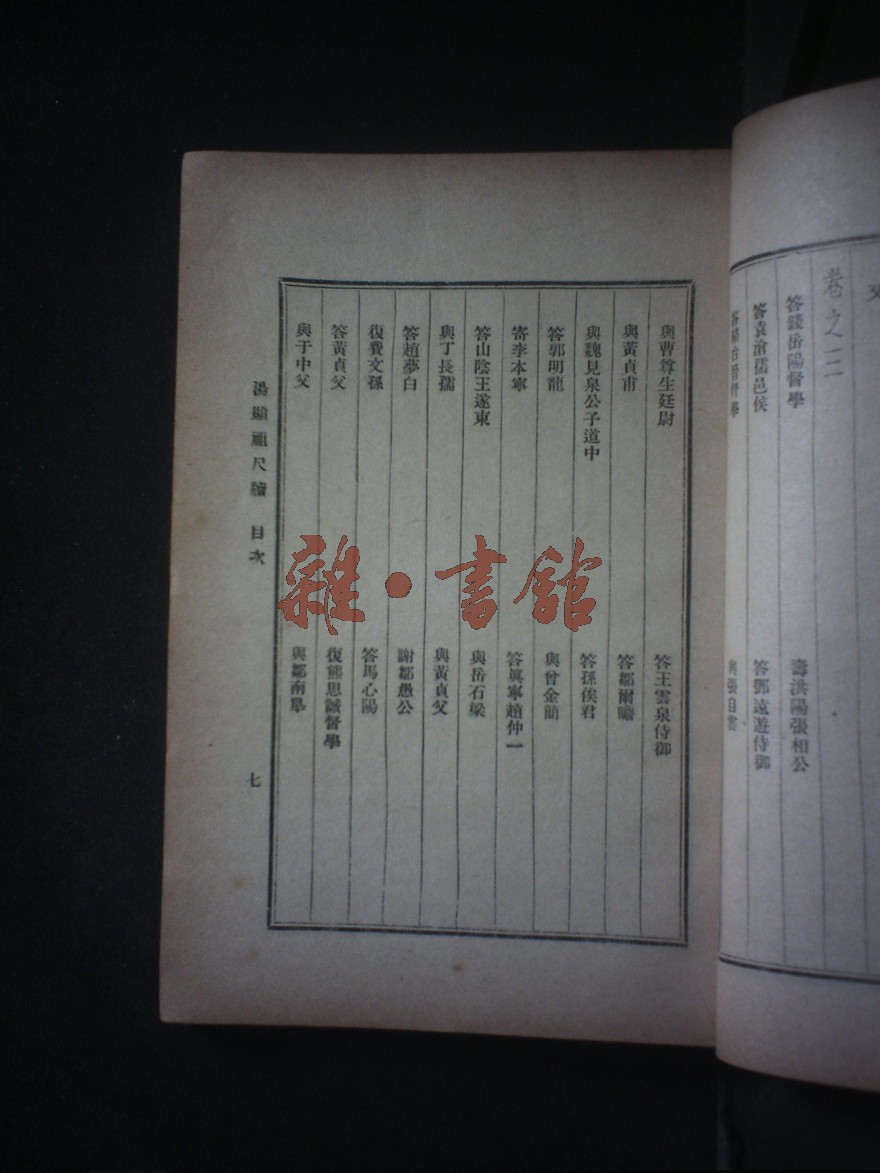 卷之三
答錢岳陽督學
壽洪陽張相公
答袁滄孺邑侯
答鄧遠遊侍御
與張自雲
與曹尊生廷尉
答王雲泉侍御
與黃貞甫
答鄒爾瞻
與魏見泉公子道中
答孫俟君
答郭明龍
與曾金簡
寄李本寧
答眞寧趙仲一
答山陰王遂東
與岳石梁
與丁長孺
與黃貞父
答趙夢白
謝鄒愚公
復費文孫
答馬心陽
答黃貞父
復熊思誠督學
與于中父
與鄒南皋
湯顯祖尺牘 目次
七
雜·書館